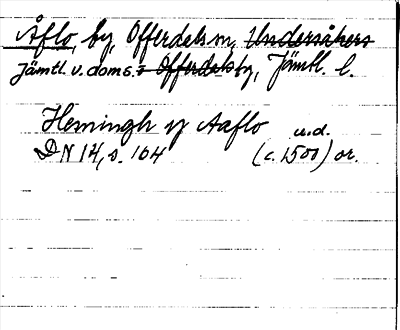 Åflo, by, Offerdals sn, Undersåkers
Jämtl. v. doms. :Offerdals by, Jämtl. l.
Hemingh y Aaflo u.d.
DN 14, s. 164 (c. 1500) or.